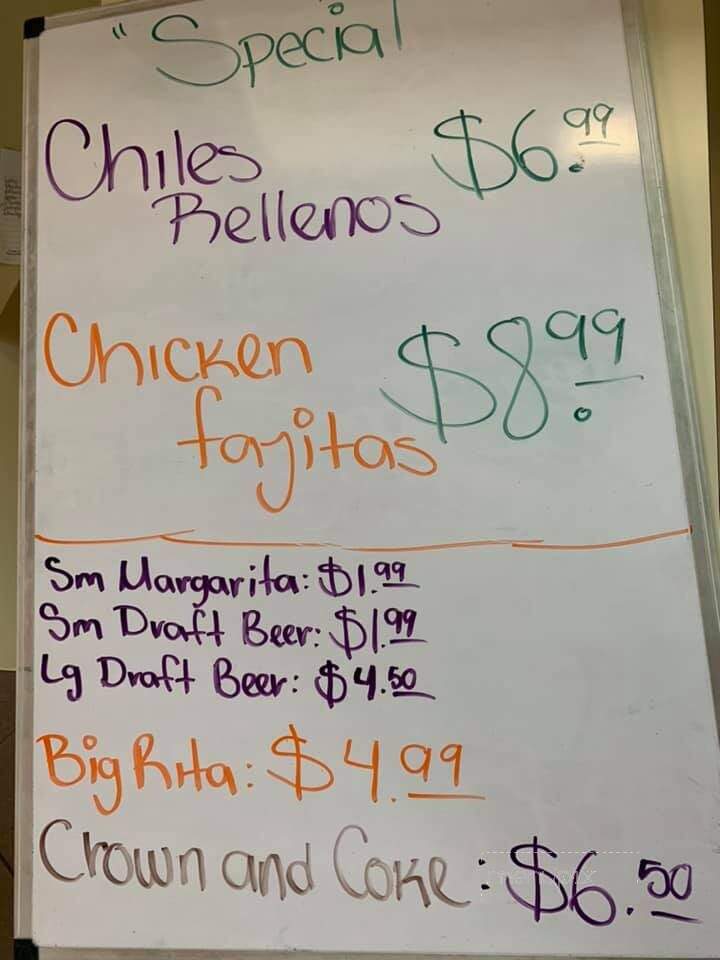 "Special
Chiles $6.99
Rellenos
Chicken $8.99
fajitas
Sm Margarita: $1.99
Sm Draft Beer: $1.99
Lg Draft Beer: $4.50
Big Rita: $4.99
Crown and Coke: $6.50